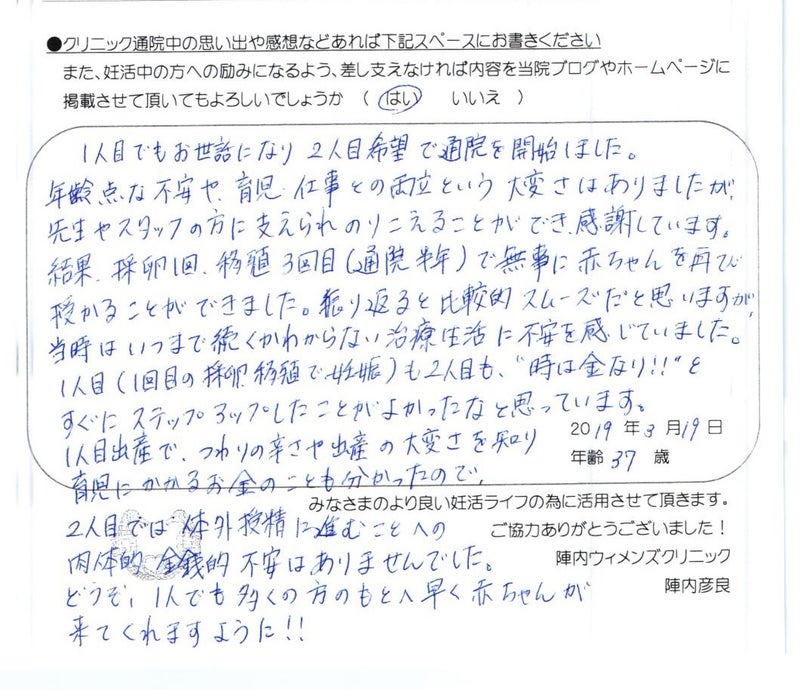 ●クリニック通院中の思い出や感想などあれば下記スペースにお書きください
また、妊活中の方への励みになるよう、差し支えなければ内容を当院ブログやホームページに
掲載させて頂いてもよろしいでしょうか （ はい　いいえ ）
1人目でもお世話になり 2人目希望で通院を開始しました。
年齢点な不安や、育児・仕事との両立という 大変さはありましたが、
先生やスタッフの方に支えられのりこえることができ、感謝しています。
結果、採卵1回、移植3回目(通院半年)で無事に赤ちゃんを再び
授かることができました。振り返ると比較的スムーズだと思いますが、
当時はいつまで続くかわからない治療生活に不安を感じていました。
1人目(1回目の採卵、移植で妊娠)も2人目も、"時は金なり!!"と
すぐにステップアップしたことがよかったなと思っています。
1人目出産で、つわりの辛さや出産の大変さを知り
2019 年 3 月 19 日
年齢 37 歳
育児にかかるお金のことも分かったので、
みなさまのより良い妊活ライフの為に活用させて頂きます。
2人目では 体外授精に進むことへの
ご協力ありがとうございました！
肉体的 金銭的 不安はありませんでした。
陣内ウィメンズクリニック
どうぞ、1人でも多くの方のもとへ早く赤ちゃんが
陣内彦良
来てくれますように!!